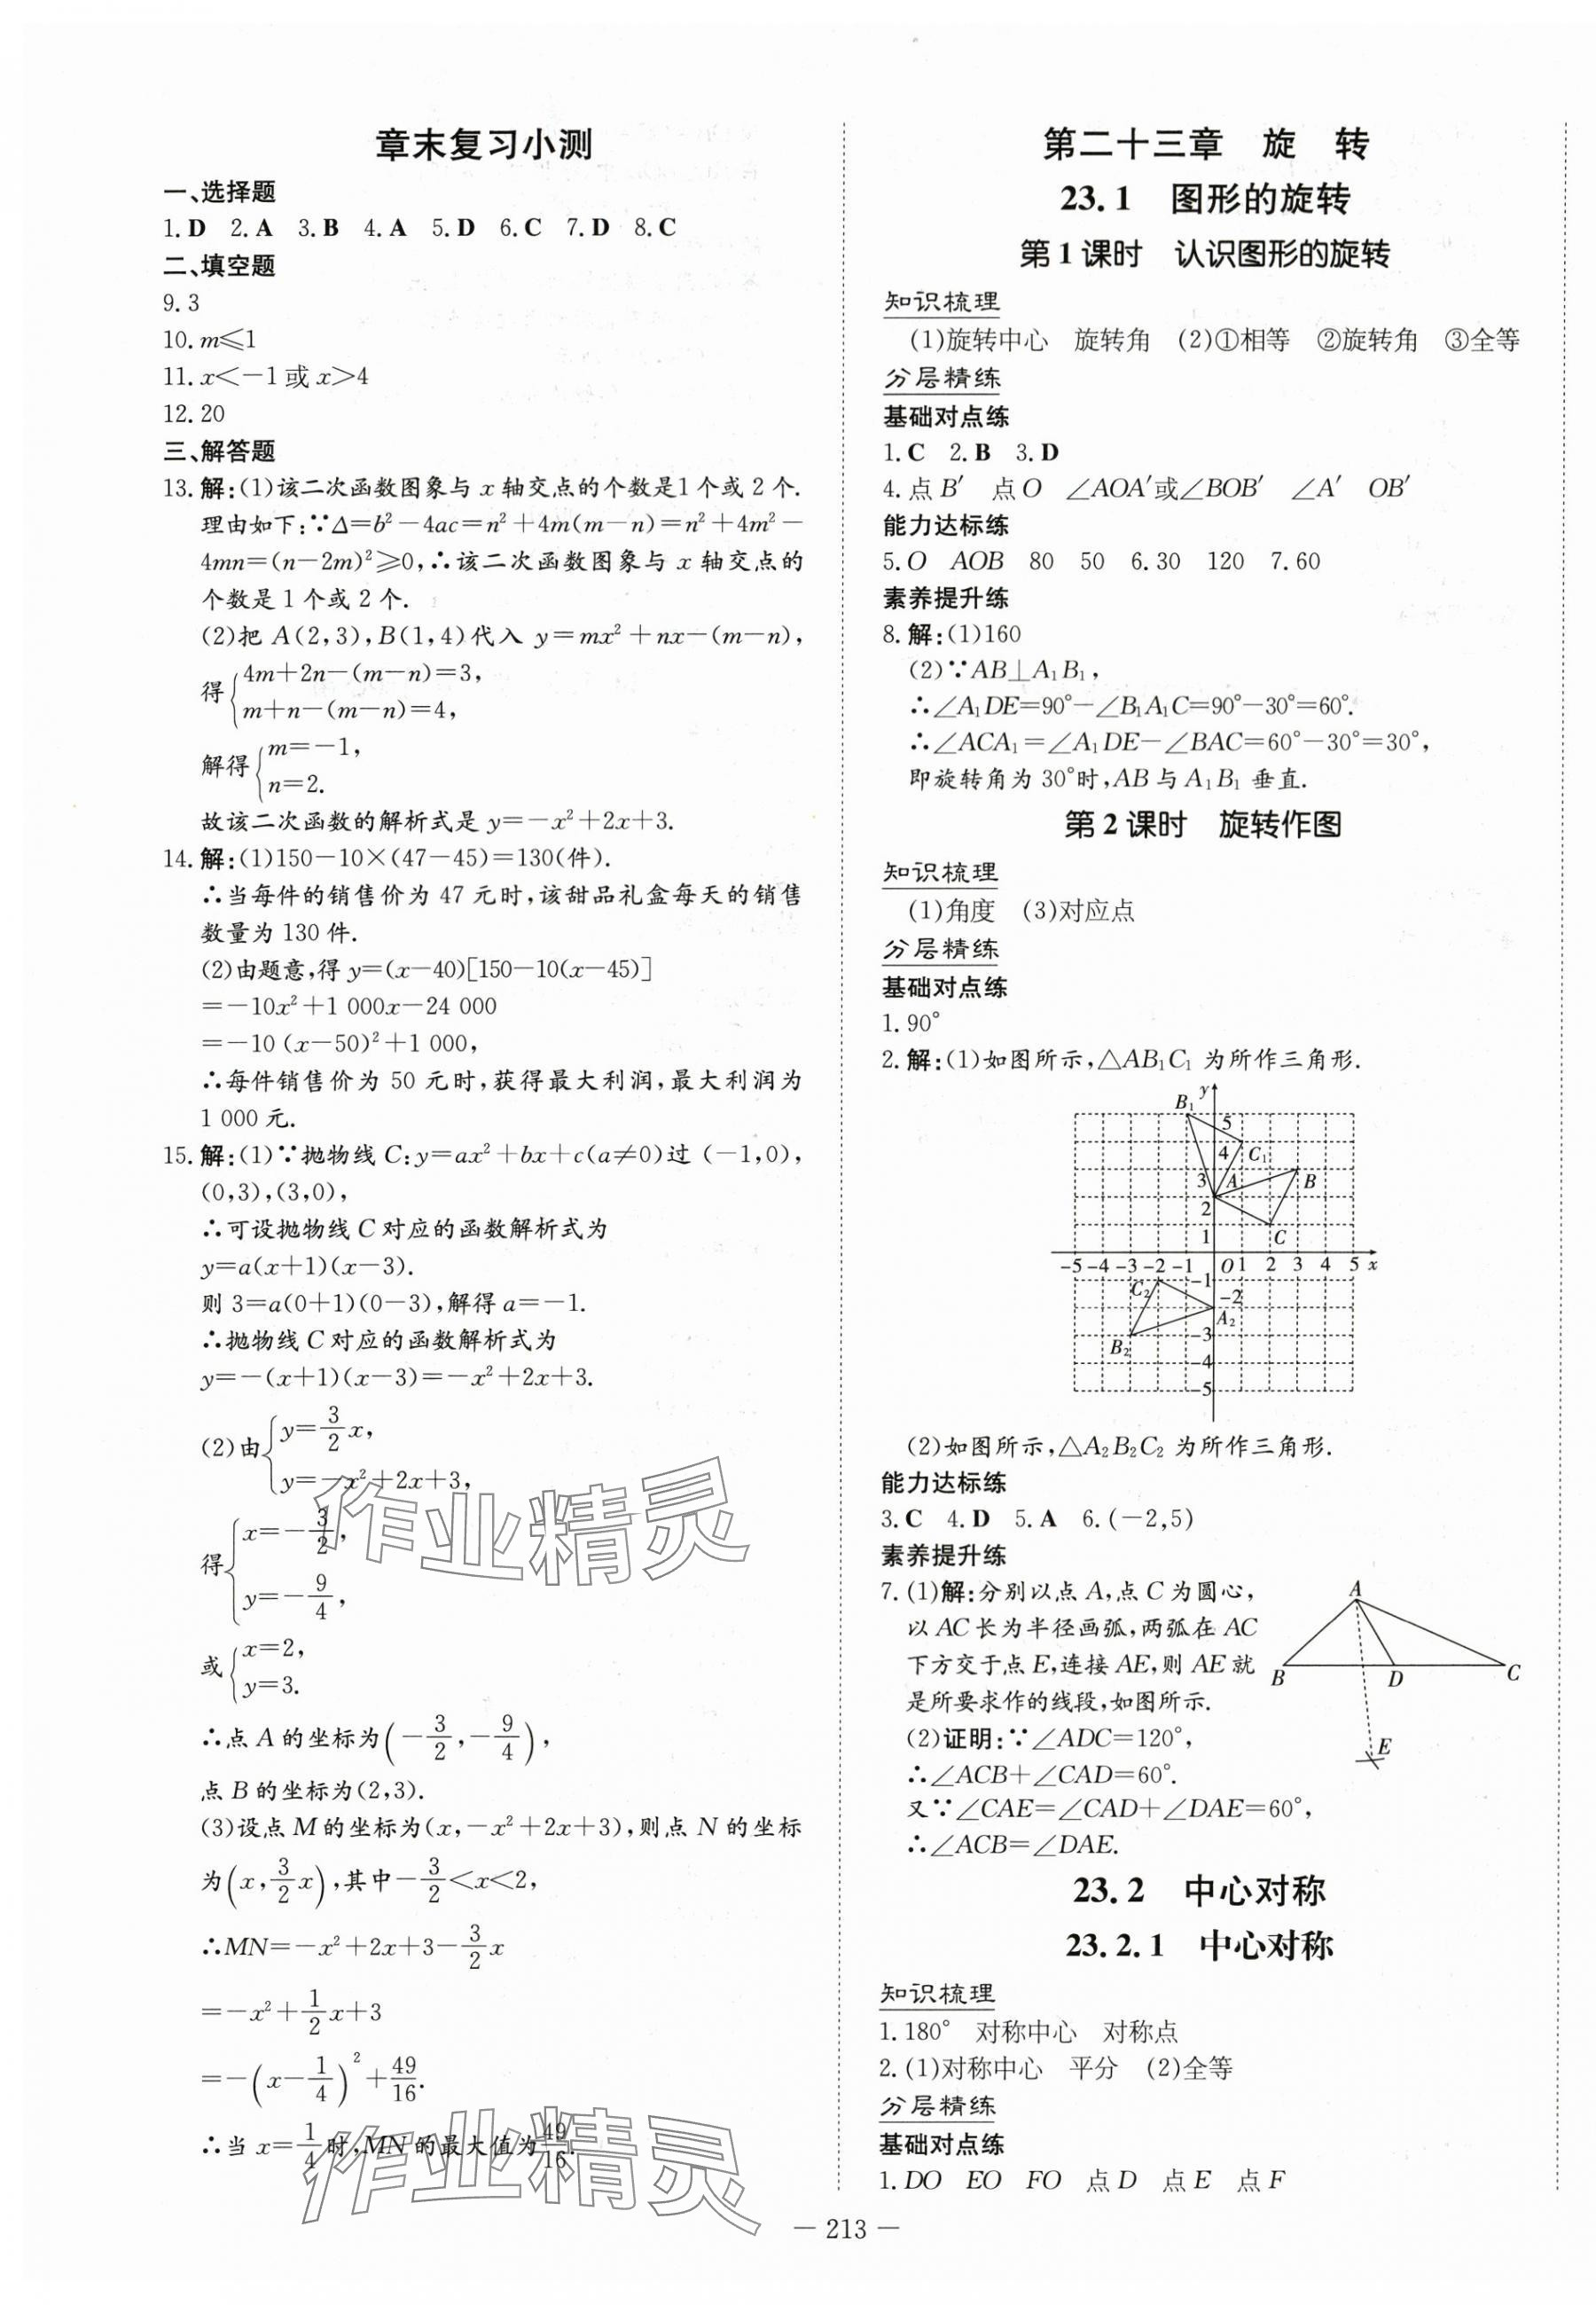 章末复习小测
一、选择题
1.D 2.A 3.B 4.A 5.D 6.C 7.D 8.C
二、填空题
9.3
10.m⩽1
11.x<-1或x>4
12.20
三、解答题
13.解:(1)该二次函数图象与x轴交点的个数是1个或2个.
理由如下:∵Δ=b²-4ac=n²+4m(m-n)=n²+4m²-
4mn=(n-2m)²⩾0,∴该二次函数图象与x轴交点的
个数是1个或2个.
(2)把A(2,3),B(1,4)代入y=mx²+nx-(m-n),
得{4m+2n-(m-n)=3,
m+n-(m-n)=4,
解得{m=-1,
n=2.
故该二次函数的解析式是y=-x²+2x+3.
14.解:(1)150-10×(47-45)=130(件).
∴当每件的销售价为47元时,该甜品礼盒每天的销售
数量为130件.
(2)由题意,得y=(x-40)[150-10(x-45)]
=-10x²+1 000x-24 000
=-10(x-50)²+1 000,
∴每件销售价为50元时,获得最大利润,最大利润为
1 000元.
15.解:(1)∵抛物线C:y=ax²+bx+c(a≠0)过(-1,0),
(0,3),(3,0),
∴可设抛物线C对应的函数解析式为
y=a(x+1)(x-3).
则3=a(0+1)(0-3),解得a=-1.
∴抛物线C对应的函数解析式为
y=-(x+1)(x-3)=-x²+2x+3.
(2)由{y=3/2x,
y=-x²+2x+3,
得{x=-3/2,
y=-9/4,
或{x=2,
y=3.
∴点A的坐标为(-3/2,-9/4),
点B的坐标为(2,3).
(3)设点M的坐标为(x,-x²+2x+3),则点N的坐标
为(x,3/2x),其中-3/2<x<2,
∴MN=-x²+2x+3-3/2x
=-x²+1/2x+3
=-(x-1/4)²+49/16.
∴当x=1/4时,MN的最大值为49/16.
作业精灵
作业精灵
第二十三章 旋 转
23.1 图形的旋转
第1课时 认识图形的旋转
知识梳理
(1)旋转中心 旋转角 (2)①相等 ②旋转角 ③全等
分层精练
基础对点练
1.C 2.B 3.D
4.点B′ 点O ∠AOA′或∠BOB′ ∠A′ OB′
能力达标练
5.O AOB 80 50 6.30 120 7.60
素养提升练
8.解:(1)160
(2)∵AB⊥A₁B₁,
∴∠A₁DE=90°-∠B₁A₁C=90°-30°=60°.
∴∠ACA₁=∠A₁DE-∠BAC=60°-30°=30°,
即旋转角为30°时,AB与A₁B₁垂直.
第2课时 旋转作图
知识梳理
(1)角度 (3)对应点
分层精练
基础对点练
1.90°
2.解:(1)如图所示,△AB₁C₁为所作三角形.
B₁ y
5
4 C₁
3 A B
2
1 C
-5 -4 -3 -2 -1 O 1 2 3 4 5 x
C₂ -1
-2
A₂
B₂ -3
-4
-5
(2)如图所示,△A₂B₂C₂为所作三角形.
能力达标练
3.C 4.D 5.A 6.(-2,5)
素养提升练
7.(1)解:分别以点A,点C为圆心,
以AC长为半径画弧,两弧在AC
下方交于点E,连接AE,则AE就
是所要求作的线段,如图所示.
A
B D C
E
(2)证明:∵∠ADC=120°,
∴∠ACB+∠CAD=60°.
又∵∠CAE=∠CAD+∠DAE=60°,
∴∠ACB=∠DAE.
23.2 中心对称
23.2.1 中心对称
知识梳理
1.180° 对称中心 对称点
2.(1)对称中心 平分 (2)全等
分层精练
基础对点练
1.DO EO FO 点D 点E 点F
— 213 —